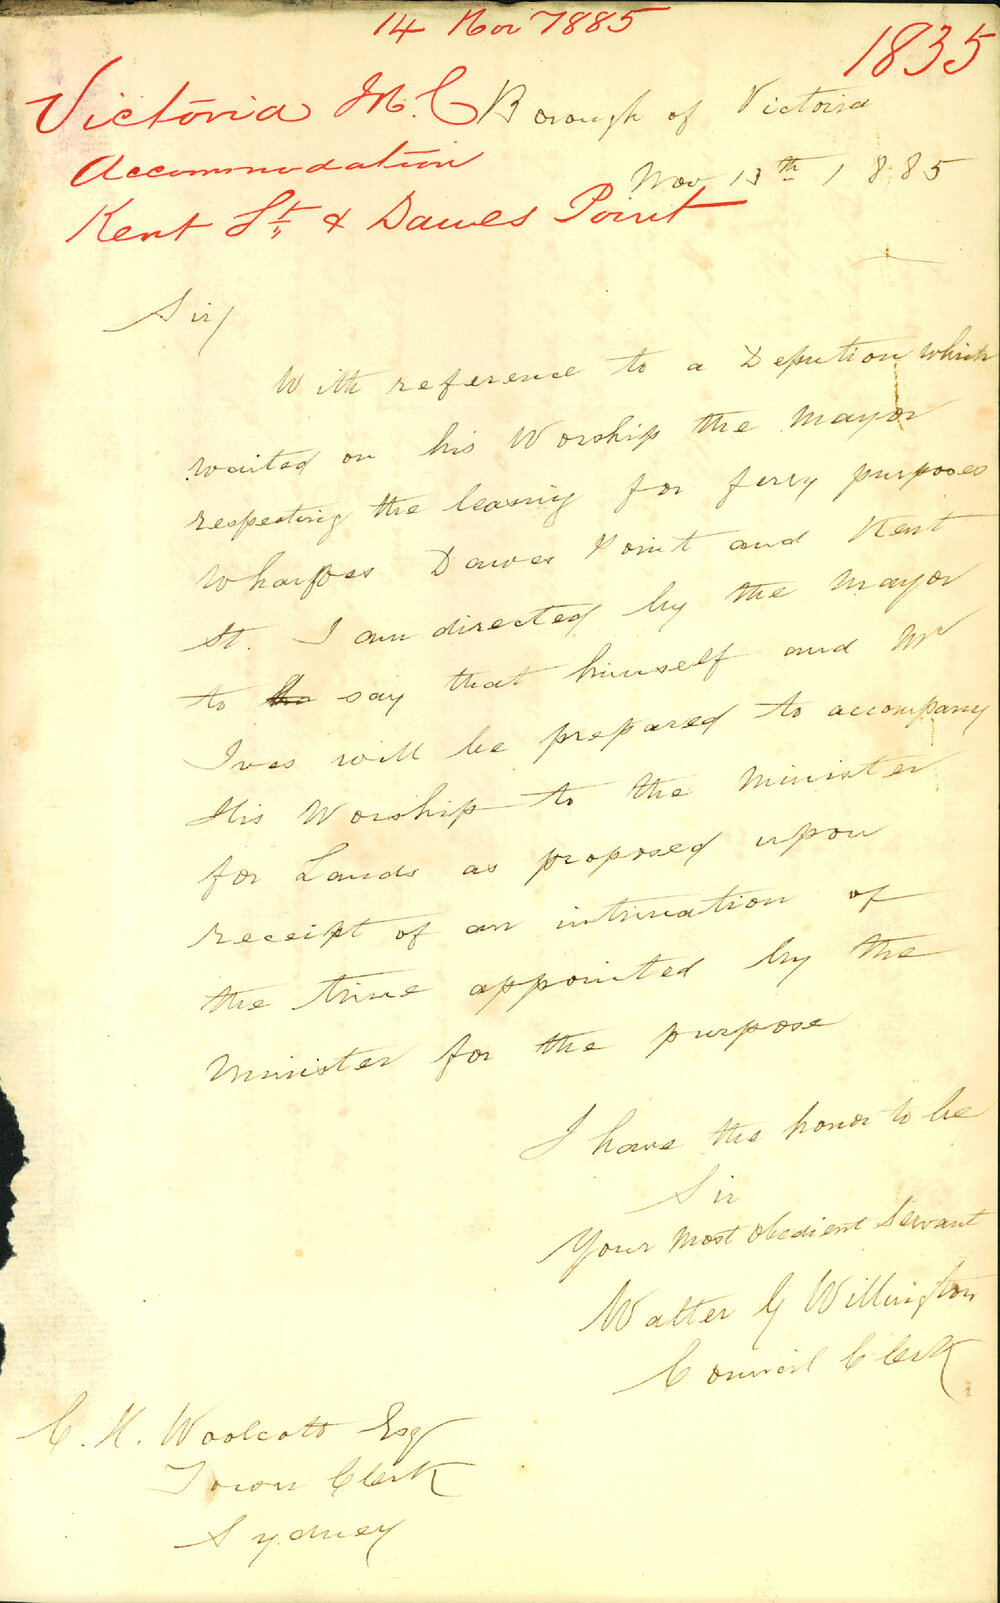 14 Nov 1885
1835
Victoria M.C
Accommodation
Kent St, & Dawes Point
Borough of Victoria
Nov 13th 1885
Sir/
With reference to a Depution which
waited on his Worship the Mayor
respecting the leasing for ferry purposes
Wharfes Dawes Point and Kent
St. I am directed by the Mayor
to say that himself and Mr
Ives will be prepared to accompany
His Worship to the Minister
for Lands as proposed upon
receipt of an intimation of
the time appointed by the
Minister for the purpose
I have the honor to be
Sir
Your Most Obedient Servant
Walter G Willington
Council Clerk
C. H. Woolcott Esq
Town Clerk
Sydney